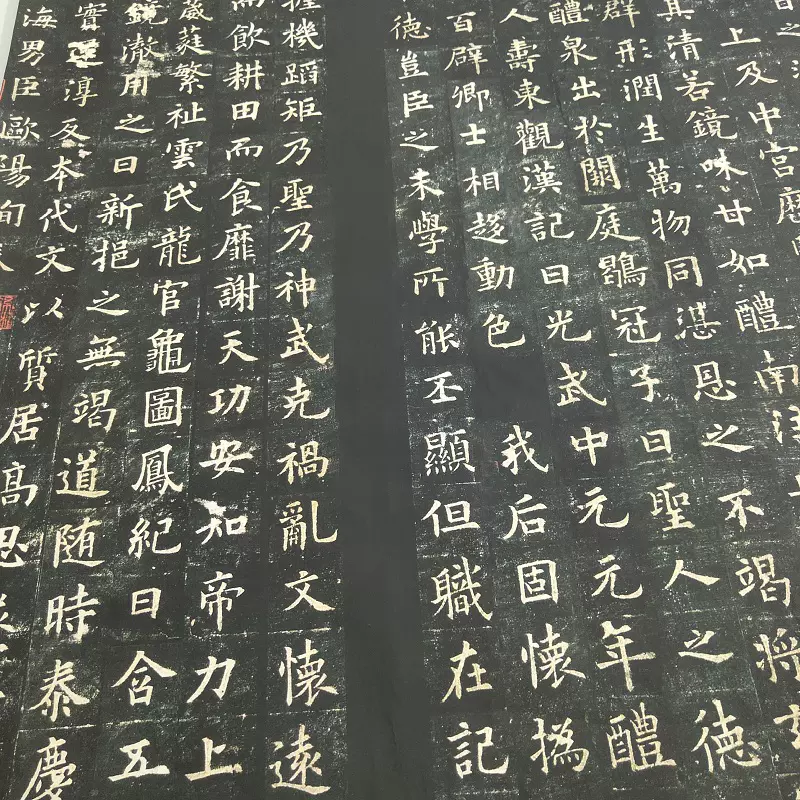 上及中宮歷
其清若鏡味甘如醴南注
群形潤生萬物同湛恩之不竭將玄
醴泉出於闕庭鶡冠子曰聖人之德
人壽東觀漢記曰光武中元元年醴
百辟卿士相趍動色 我后固懷撝
德豈臣之末學所能丕顯但職在記
握機蹈矩乃聖乃神武克禍亂文懷遠
而飲耕田而食靡謝天功安知帝力上
葳蕤繁祉雲氏龍官龜圖鳳紀日含五
鏡澈用之日新挹之無竭道随時泰慶
實還淳反本代文以質居高思
海男臣歐陽詢